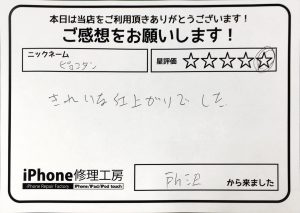 本日は当店をご利用頂きありがとうございます！
ご感想をお願いします！
ニックネーム
ピヨコタン
星評価
☆☆☆☆☆
きれいな仕上がりでした
iPhone修理工房
iPhone Repair Factory
iPhone/iPad/iPod touch
所沢
から来ました